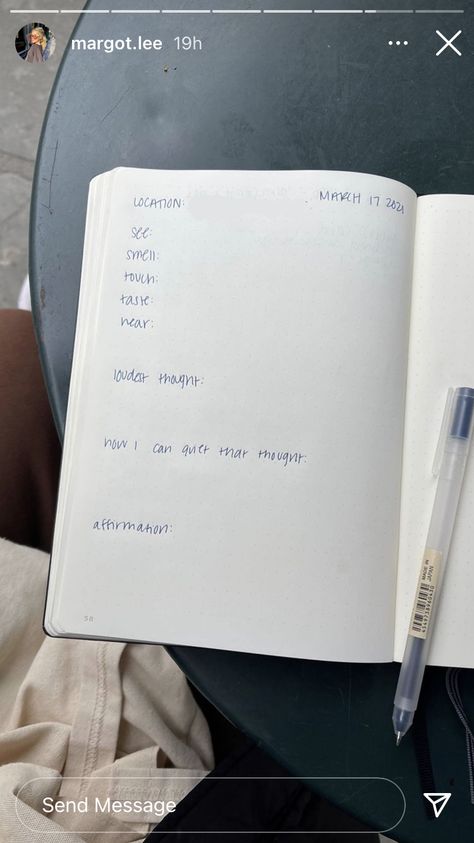 margot.lee 19h
LOCATION: MARCH 17 2021
see:
smell:
touch:
taste:
hear:
loudest thought:
how I can quiet that thought:
affirmation:
MADE IN
JAPAN
58
Send Message